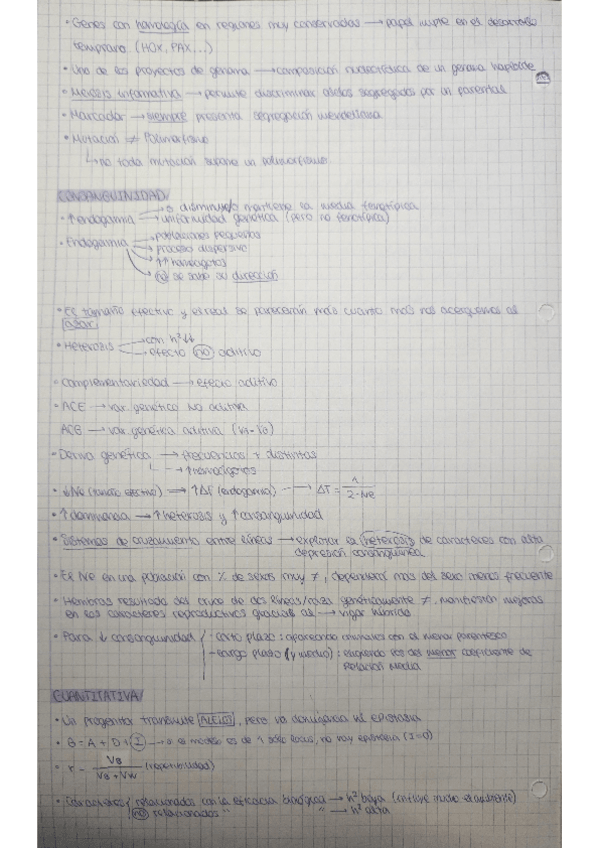 • Genes con homología en regiones muy conservadas → papel impte en el desarrollo
temprano (HOX, PAX...)
• Uno de los proyectos de genoma → composición nucleotídica de un genoma haploide
• Meiosis informativa → permite discriminar alelos segregados por un parental
• Marcador → siempre presenta segregación mendeliana
• Mutación ≠ Polimorfismo
↳ no toda mutación supone un polimorfismo
CONSANGUINIDAD
• ↑ endogamia → o mantiene la media fenotípica
→ uniformidad genética (pero no fenotípica)
• Endogamia → poblaciones pequeñas
→ proceso dispersivo
→ ↑↑ homocigotos
→ no se sabe su dirección
• El tamaño efectivo y el real se parecerán más cuanto más nos acerquemos al
azar
• Heterosis → con h² ↓↓
→ efecto no aditivo
• Complementariedad → efecto aditivo
• ACE → var. genética no aditiva
ACG → var. genética aditiva
• Deriva genética → frecuencias + distintas
↳ → ↑ homocigotos
• ↓ Ne (tamaño efectivo) → ↑ ΔF (endogamia) → ΔF = 1 / 2·Ne
• ↑ dominancia → ↑ heterosis y ↑ consanguinidad
• Sistemas de cruzamiento entre líneas → explotar la heterosis de caracteres con alta
depresión consanguínea
• El Ne en una población con % de sexos muy ≠, dependerá más del sexo menos frecuente
• Hembras resultado del cruce de dos líneas/razas genéticamente ≠, manifiestan mejoras
en los caracteres reproductivos gracias al → vigor híbrido
• Para ↓ consanguinidad - corto plazo: apareando animales con el menor parentesco
- largo plazo (y medio): eligiendo los del menor coeficiente de
relación media
CUANTITATIVA
• Un progenitor transmite ALELOS, pero no dominancia ni epistasia
• G = A + D + I → si el modelo es de 1 sólo locus, no hay epistasia (I=0)
• r = VB / VB + VW (repetibilidad)
• Caracteres relacionados con la eficacia biológica → h² baja (influye mucho el ambiente)
no relacionados " " → h² alta